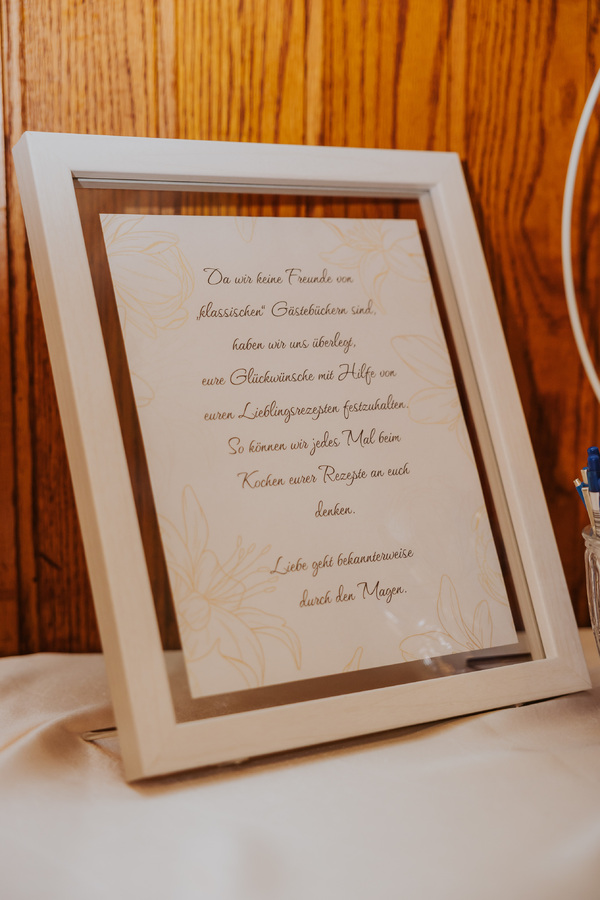 Da wir keine Freunde von
„klassischen“ Gästebüchern sind,
haben wir uns überlegt,
eure Glückwünsche mit Hilfe von
euren Lieblingsrezepten festzuhalten.
So können wir jedes Mal beim
Kochen eurer Rezepte an euch
denken.
Liebe geht bekannterweise
durch den Magen.